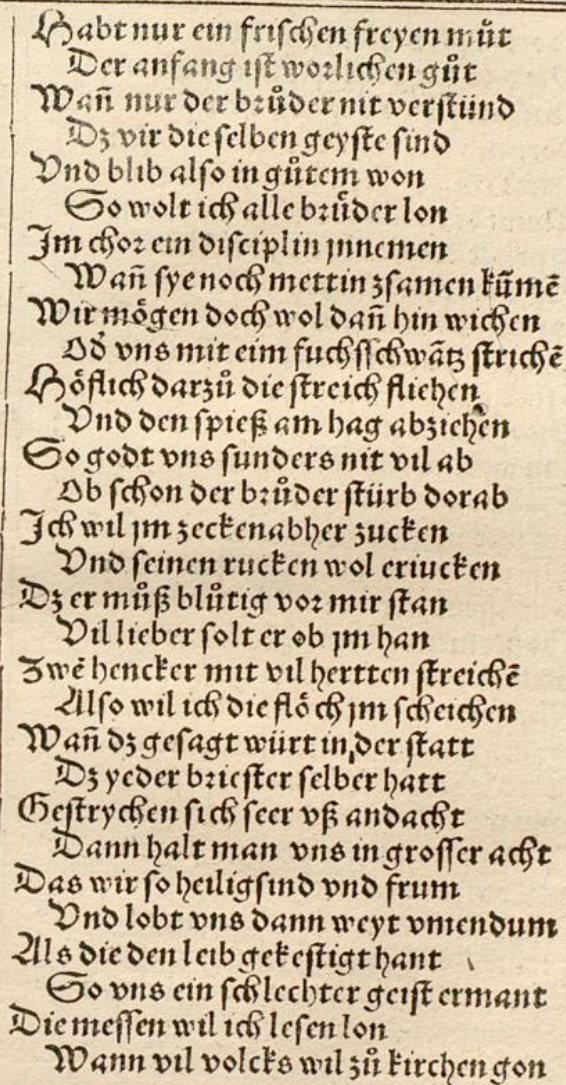 Habt nur ein frischen freyen můt
Der anfang ist worlichen gůt
Wañ nur der brůder nit verstünd
Dz wir die selben geyste sind
Vnd blib also in gůtem won
So wolt ich alle brůder lon
Im chor ein disciplin jnnemen
Wañ sye noch mettin zsamen kūmē
Wir mögen doch wol dañ hin wichen
Od̕ vns mit eim fuchsschwātz strichē
Höflich darzů die streich fliehen
Vnd den spieß am hag abziehen
So godt vns sunders nit vil ab
Ob schon der brůder stürb dorab
Ich wil jm zecken abher zucken
Vnd seinen rucken wol eriucken
Dz er můß blůtig vor mir stan
Vil lieber solt er ob jm han
Zwē hencker mit vil hertten streichē
Also wil ich die flöch jm scheichen
Wañ dz gesagt würt in der statt
Dz yeder briester selber hatt
Gestrychen sich seer vß andacht
Dann halt man vns in grosser acht
Das wir so heilig sind vnd frum
Vnd lobt vns dann weyt vmendum
Als die den leib gekestigt hant
So vns ein schlechter geist ermant
Die messen wil ich lesen lon
Wann vil volcks wil zů kirchen gon